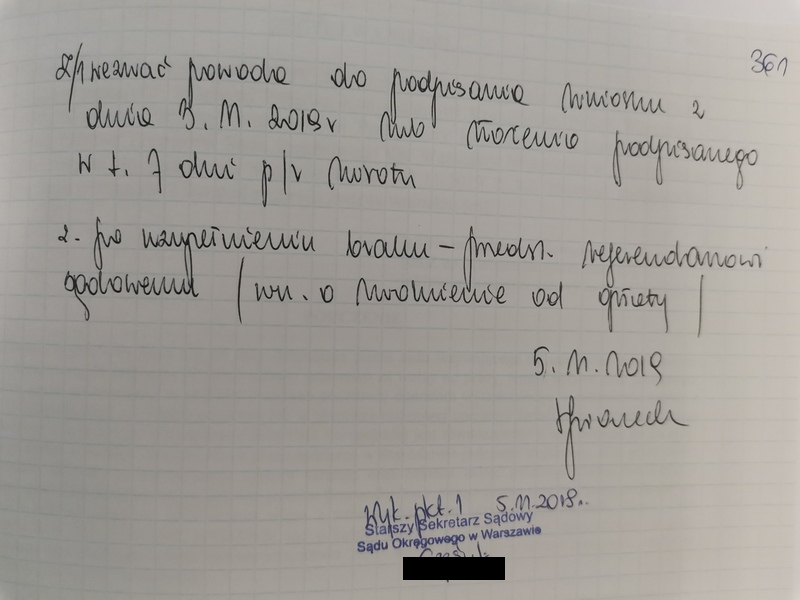 361
Z/1 wezwać powoda do podpisania wniosku z
dnia 3. 11. 2019 r lub złożenia podpisanego
w t. 7 dni p/r zwrotu
2. po uzupełnieniu braku - przedst. referendarzowi
sądowemu / wn. o zwolnienie od opłaty /
5. 11. 2019
Wyk. pkt. 1 5.11.2019r.
Starszy Sekretarz Sądowy
Sądu Okręgowego w Warszawie